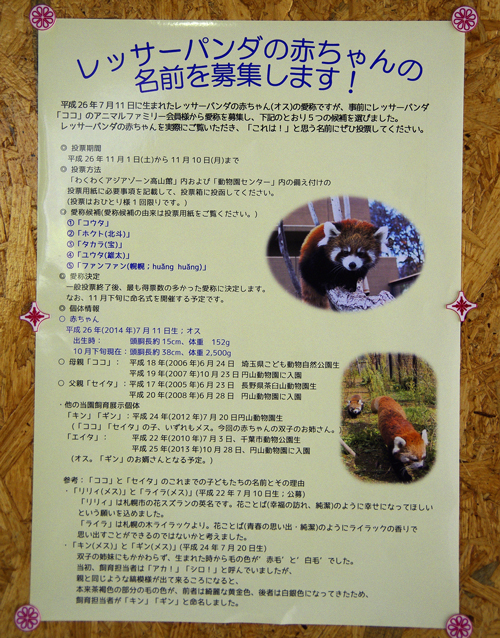 レッサーパンダの赤ちゃんの
名前を募集します！
平成26年7月11日に生まれたレッサーパンダの赤ちゃん(オス)の愛称ですが、事前にレッサーパンダ
「ココ」のアニマルファミリー会員様から愛称を募集し、下記のとおり5つの候補を選びました。
レッサーパンダの赤ちゃんを実際にご覧いただき、「これは！」と思う名前にぜひ投票してください。
◎ 投票期間
平成26年11月1日(土)から11月10日(月)まで
◎ 投票方法
「わくわくアジアゾーン高山館」内および「動物園センター」内の備え付けの
投票用紙に必要事項を記載して、投票箱に投函してください。
(投票はおひとり様1回限りです。)
◎ 愛称候補(愛称候補の由来は投票用紙をご覧ください。)
①「コウタ」
②「ホクト(北斗)」
③「タカラ(宝)」
④「ユウタ(雄太)」
⑤「ファンファン(幌幌；huǎng huǎng)」
◎ 愛称決定
一般投票終了後、最も得票数の多かった愛称に決定します。
なお、11月下旬に命名式を開催する予定です。
◎ 個体情報
○ 赤ちゃん
平成26年(2014年)7月11日生；オス
出生時： 頭胴長約15cm、体重 152g
10月下旬現在：頭胴長約38cm、体重2,500g
○ 母親「ココ」： 平成18年(2006年)6月24日 埼玉県こども動物自然公園生
平成19年(2007年)10月23日円山動物園に入園
○ 父親「セイタ」：平成17年(2005年)6月23日 長野県茶臼山動物園生
平成20年(2008年)6月28日 円山動物園に入園
・他の当園飼育展示個体
「キン」「ギン」：平成24年(2012年)7月20日円山動物園生
(「ココ」「セイタ」の子、いずれもメス。今回の赤ちゃんの双子のお姉さん。)
「エイタ」： 平成22年(2010年)7月3日、千葉市動物公園生
平成25年(2013年)10月28日、円山動物園に入園
(オス。「ギン」のお婿さんとなる予定。)
参考：「ココ」と「セイタ」のこれまでの子どもたちの名前とその理由
・「リリィ(メス)」と「ライラ(メス)」(平成22年7月10日生；公募)
「リリィ」は札幌市の花スズランの英名です。花ことば(幸福の訪れ、純潔)のように幸せになってほしい
という願いを込めました。
「ライラ」は札幌の木ライラックより。花ことば(青春の思い出・純潔)のようにライラックの香りで
思い出すことができるのではないかと考えました。
・「キン(メス)」と「ギン(メス)」(平成24年7月20日生)
双子の姉妹にもかかわらず、生まれた時から毛の色が’赤毛’と’白毛’でした。
当初、飼育担当者は「アカ！」「シロ！」と呼んでいましたが、
親と同じような縞模様が出て来るころになると、
本来茶褐色の部分の毛の色が、前者は綺麗な黄金色、後者は白銀色になってきたため、
飼育担当者が「キン」「ギン」と命名しました。